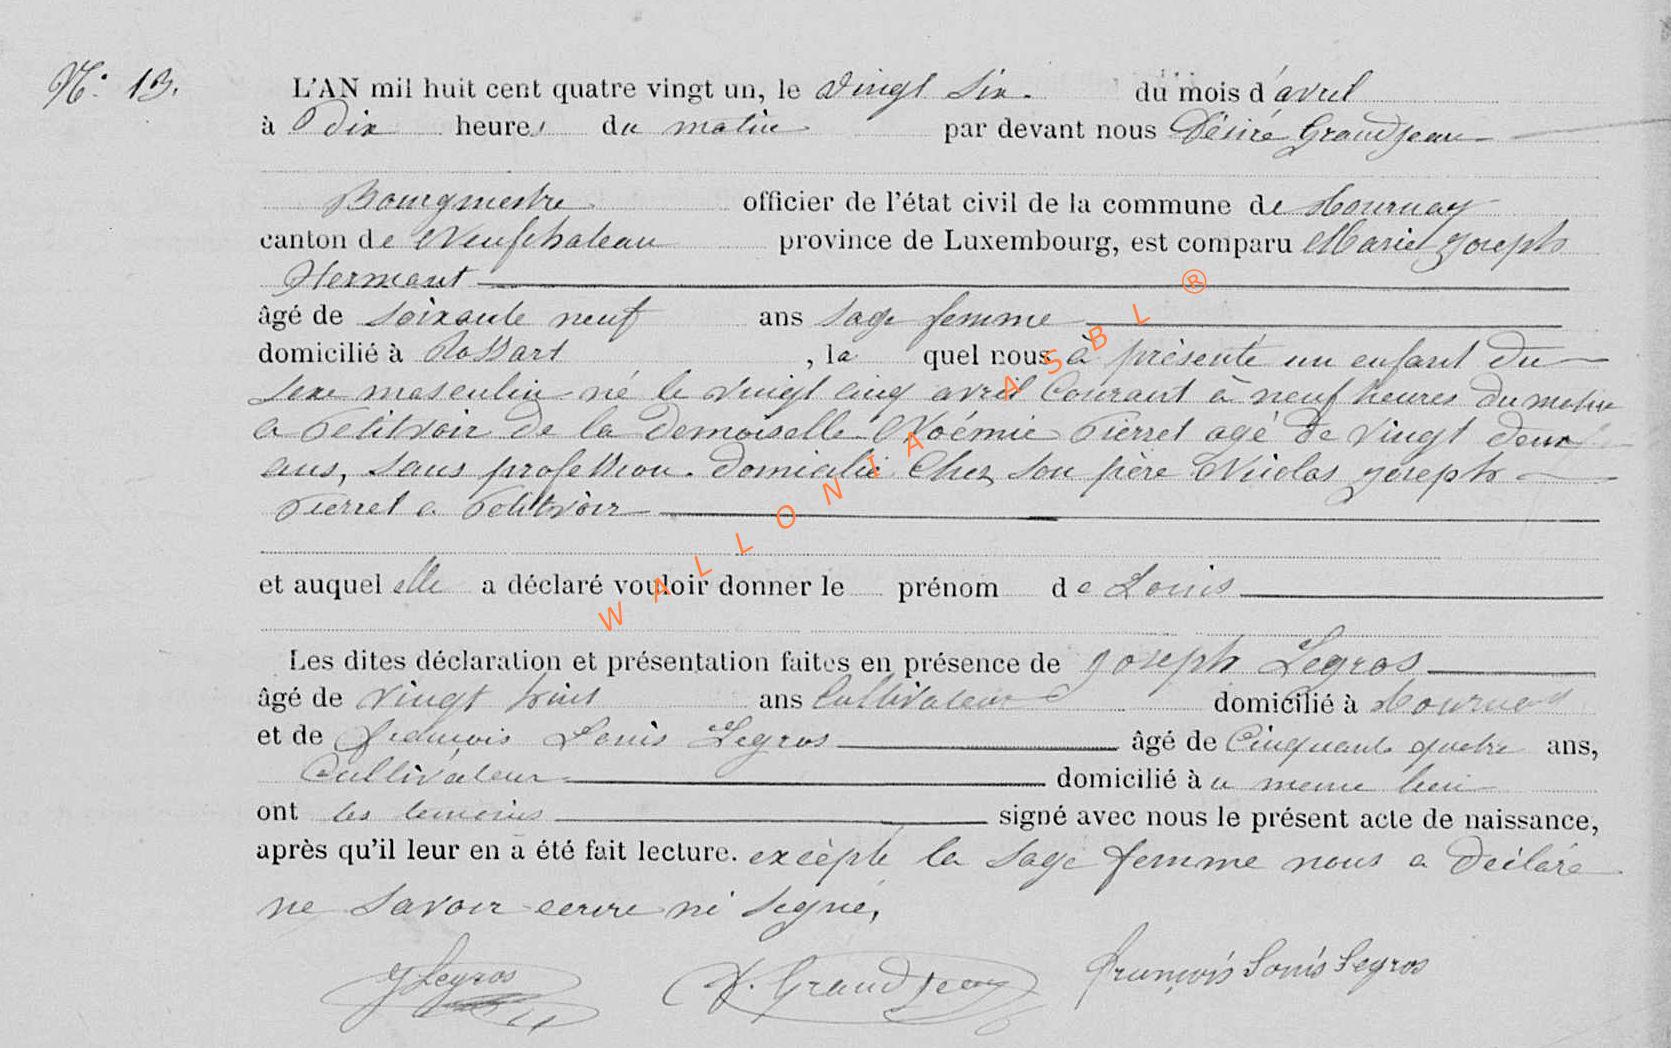 N° 13.
L'AN mil huit cent quatre vingt un, le vingt six. du mois d'avril
à dix heures du matin par devant nous Désiré Grandjean
Bourgmestre officier de l'état civil de la commune de Tournay
canton de Neufchateau province de Luxembourg, est comparu Marie Joseph
Hermant
âgé de soixante neuf ans sage femme
domicilié à Rossart , la quel nous à présenté un enfant du
sexe masculin né le vingt cinq avril Courant à neuf heures du matin
a Petitvoir de la demoiselle Noémie Pierret agé de vingt deux
ans, sans profession. domicilié Chez son père Nicolas Joseph
Pierret a Petitvoir
et auquel elle a déclaré vouloir donner le prénom de Louis
Les dites déclaration et présentation faites en présence de Joseph Legros
âgé de vingt huit ans Cultivateur domicilié à Tournay
et de François Louis Legros âgé de Cinquante quatre ans,
Cultivateur domicilié à u meme lieu
ont les temoins signé avec nous le présent acte de naissance,
après qu'il leur en a été fait lecture. excèpté la sage femme nous a déclaré
ne savoir ecrire ni signé,
J Legros D. Grandjean François Louis Legros
WALLONIA ASBL ®